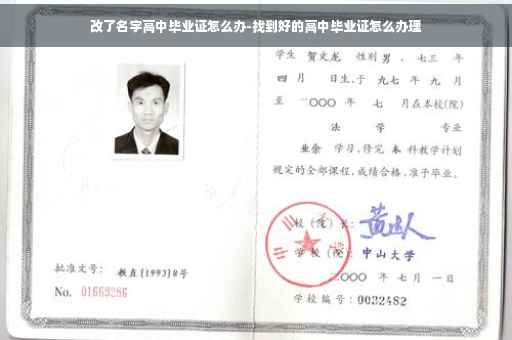 改了名字高中毕业证怎么办-找到好的高中毕业证怎么办理
学生 贺文龙 性别 男 、七三 年
四 月 日生,于 九七 年 九 月
至 二〇〇〇 年 七 月在本校(院)
法 学 专业
业余 学习,修完 本 科教学计划
规定的全部课程,成绩合格,准予毕业。
校(院)长:
学校(院): 中山大学
二〇〇〇 年 七 月 一 日
批准文号: 教直[1993]8号
No. 01669286
学校编号: 0032482